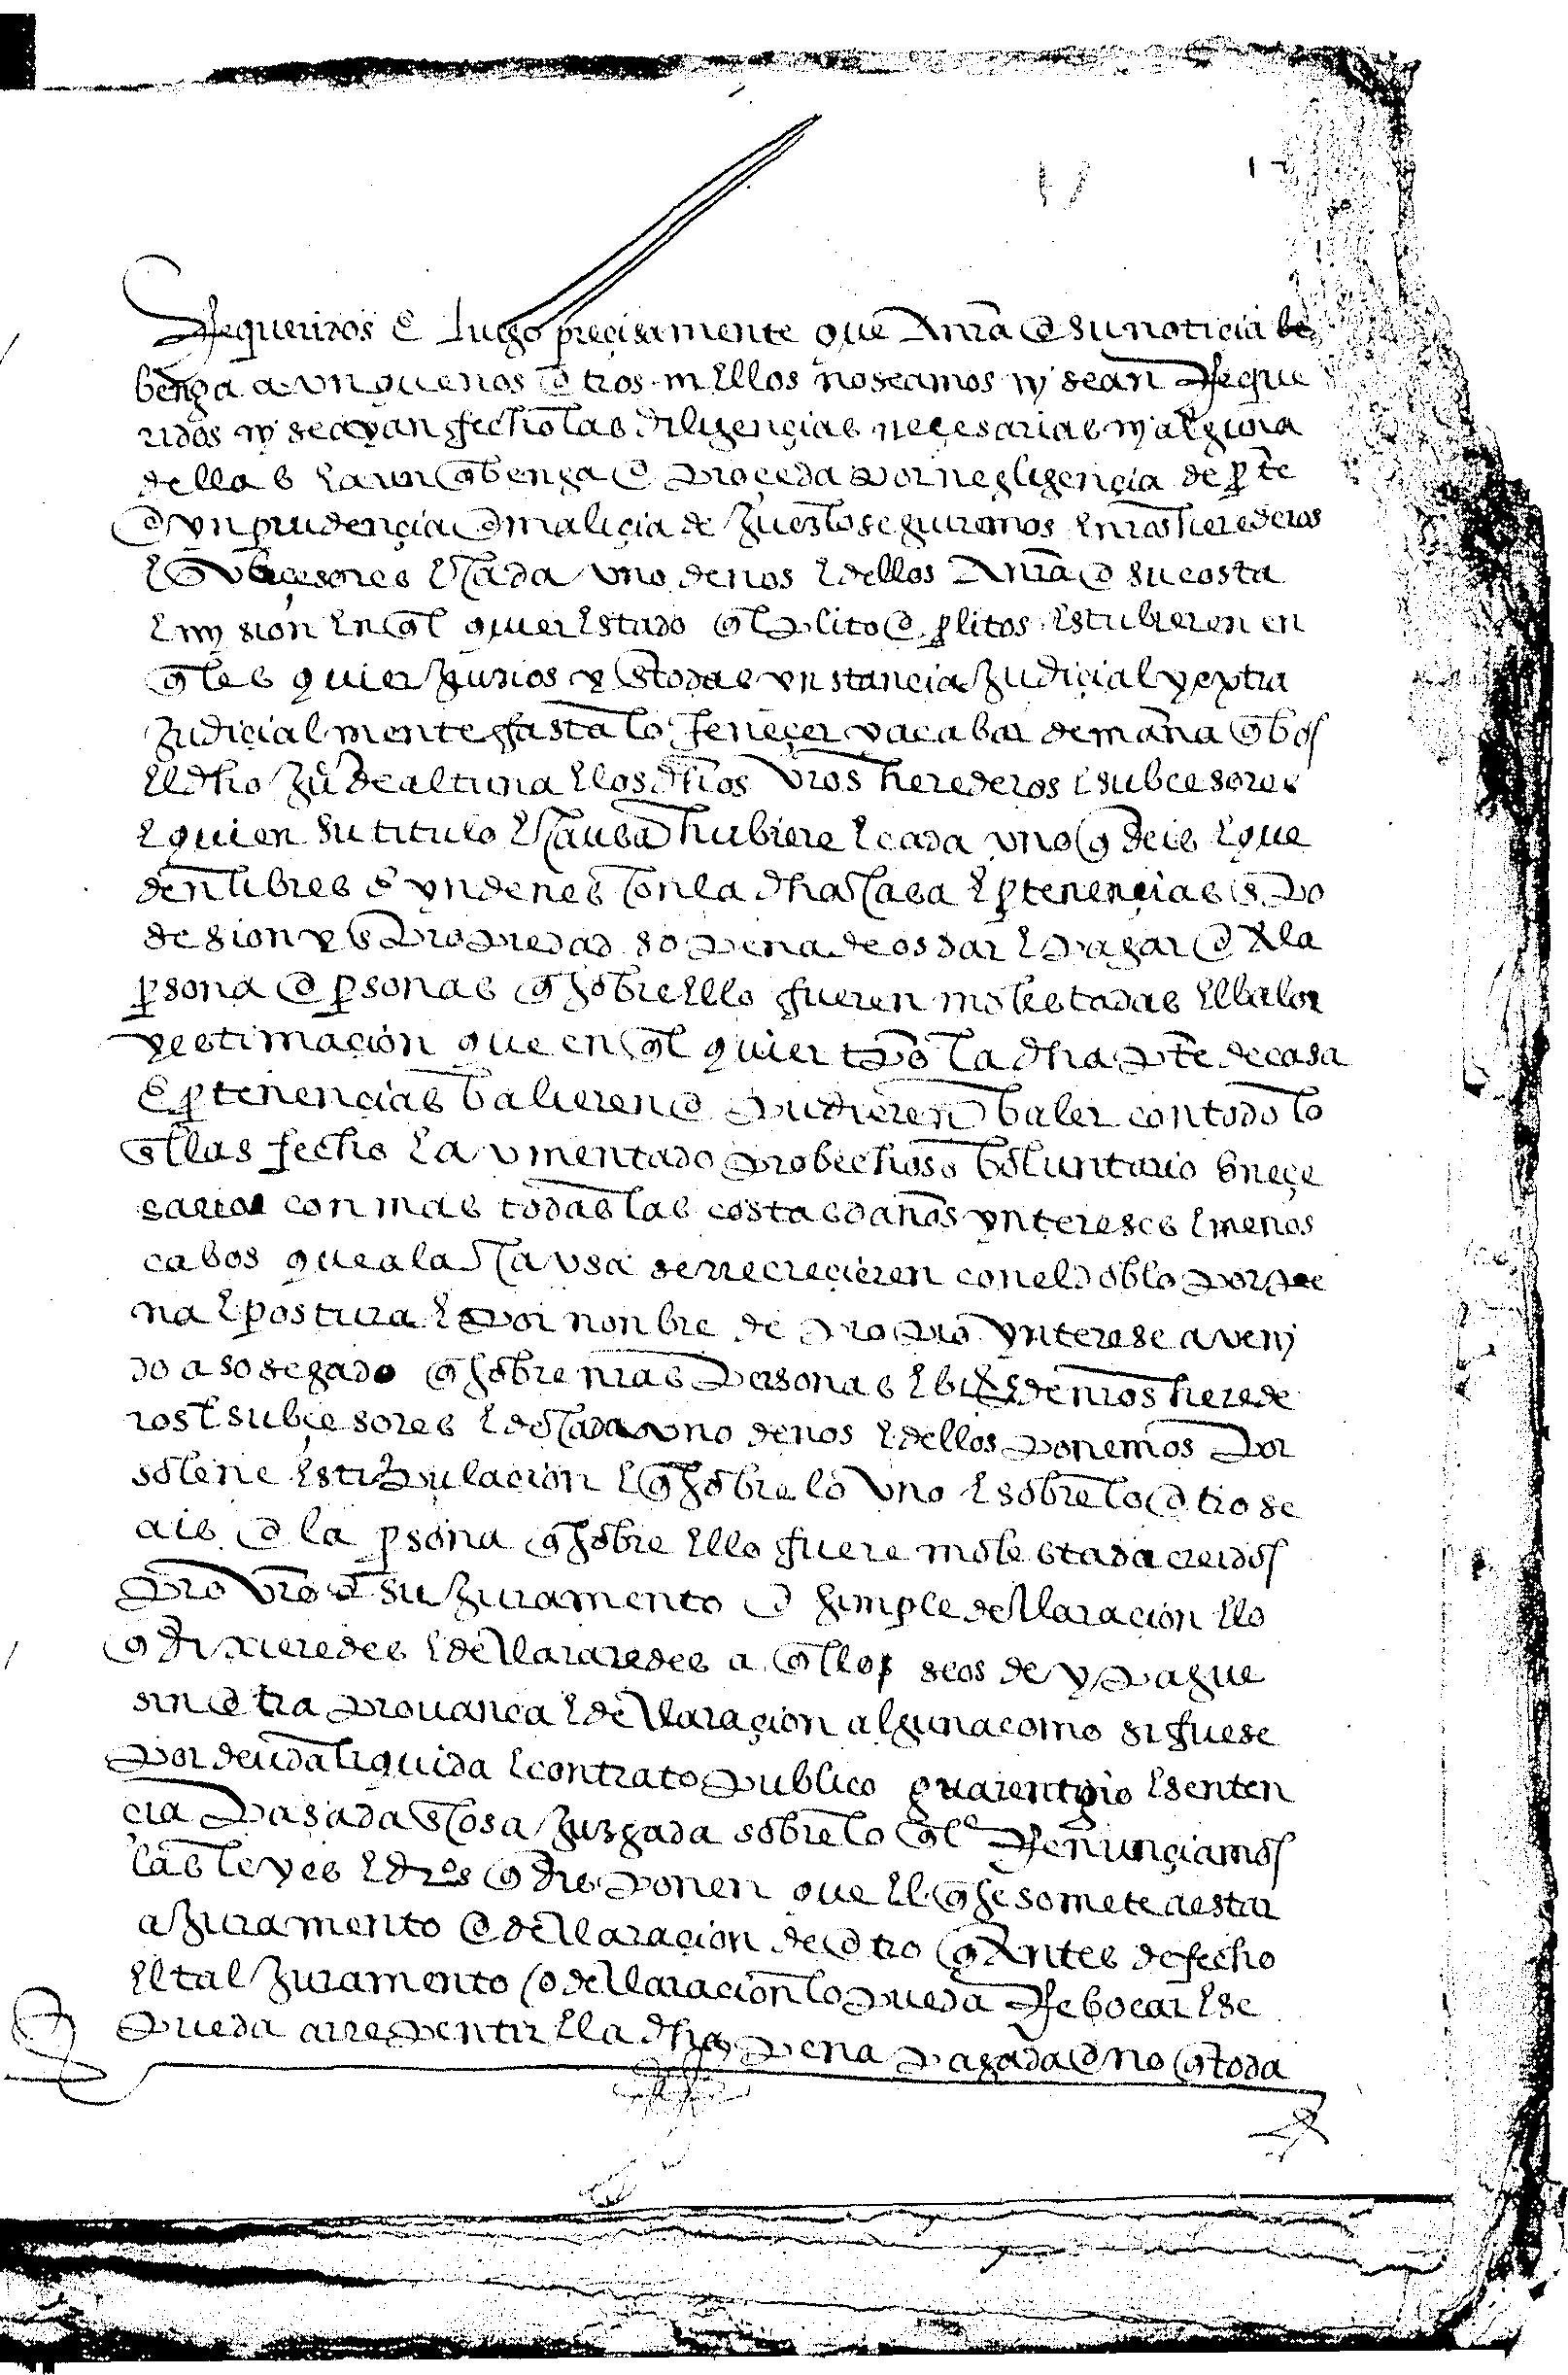 Requeridos e luego precisamente que A nra o su noticia be
benga a vnque nos otros ni Ellos no seamos ny sean Reque
ridos ny seayan fecho las diligençias neçesarias ny alguna
dellas E avn q benga o proçeda por negligençia de pte
o ynprudençia o maliçia de Juez lo seguiremos E nros herederos
E subçesores E cada vno de nos E dellos A nra o su costa
E mysion En ql quier Estado ql plito o plitos Estubieren en
qles quier Juizios y en todas ynstancia Judiçial y extra
Judiçialmente fasta lo feneçer y acabar de mana q bos
El dho Ju de altuna E los dhos vros herederos E subcesores
E quien su titulo E causa hubiere E cada vno q deis E que
den libres E yndenes con la dha casa E ptenençias E po
sesion y E propiedad so pena de os dar E pagar o A la
psona o psonas q sobre Ello fueren molestadas El balor
y estimaçion que en ql quier tpo la dha pte de casa
E ptenençias balieren o pudieren baler con todo lo
q Ellas fecho E avmentado probechoso boluntario E neçe
sario con mas todas las costas daños yntereses E menos
cabos que a la causa se rrecreçieren con el doblo por pe
na E postura E por nonbre de propio ynterese aveni
do asosegado q sobre nras personas E bienes E de nros herede
ros E subçesores E de cada vno de nos E dellos ponemos por
solene Estipulaçion E q sobre lo vno E sobre lo otro se
ais o la psona q sobre Ello fuere molestada creidos
por vro o su Juramento o simple declaraçion E lo
q dixieredes E declararedes aquello se os de y pague
sin otra prouança E declaraçion alguna como si fuese
por deuda liquida E contrato publico guarentigio E senten
cia pasada En cosa Juzgada sobre lo ql Renunçiamos
las leyes E dros q disponen que El q se somete a estar
a Juramento o declaraçion de otro q Antes de fecho
El tal Juramento o declaraçion lo pueda Rebocar E se
pueda arrepentir E la dha pena pagada o no q toda